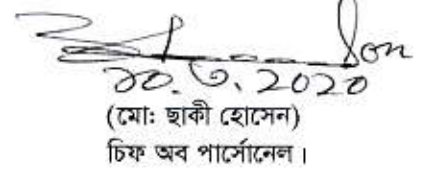 ১০.৩.2020
(মো: ছাকী হোসেন)
চিফ অব পার্সোনেল।